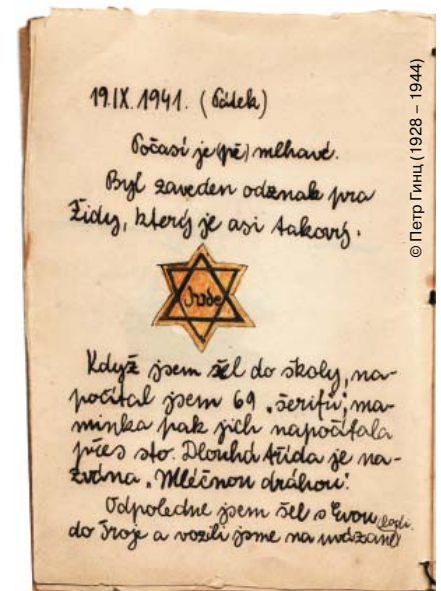 19.IX.1941. (Pátek)
Počasí je (pě) mlhavé.
Byl zaveden odznak pra
Židy, který je asi takový.
Jude
Když jsem šel do školy, na-
počítal jsem 69 „šerifů“, ma-
minka pak jich napočítala
přes sto. Dlouhá třída je na-
zvána „Mléčnou dráhou“.
Odpoledne jsem šel s Evou
do Troje a vozili jsme na
© Петр Гинц (1928 – 1944)